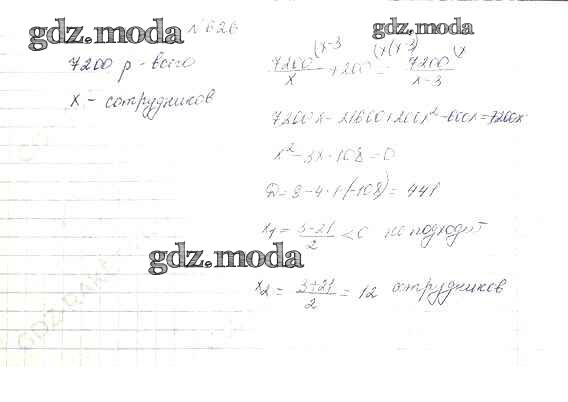 №626
gdz.moda
gdz.moda
7200 р - всего
x - сотрудников
7200/x (x-3 + 200 (x(x-3) = 7200/x-3 (x
7200x - 21600 + 200x² - 600x = 7200x
x² - 3x - 108 = 0
D = 9 - 4·1·(-108) = 441
x₁ = 3-21/2 < 0 не подходит
gdz.moda
x₂ = 3+21/2 = 12 сотрудников